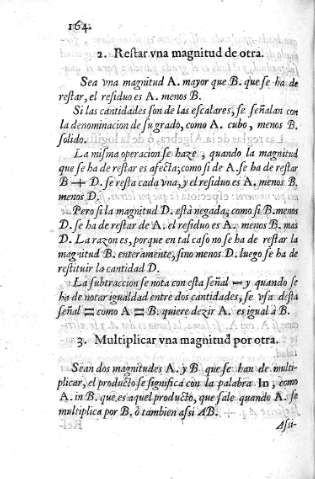 164.
2. Reſtar vna magnitud de otra.
Sea vna magnitud A. mayor que B. que ſe ha de
reſtar, el reſiduo es A. menos B.
Si las cantidades ſon de las eſcalares, ſe ſeñalan con
la denominacion de ſu grado, como A. cubo, menos B.
ſolido.
La miſma operacion ſe haze, quando la magnitud
que ſe ha de reſtar es afecta; como ſi de A. ſe ha de reſtar
B + D. ſe reſta cada vna, y el reſiduo es A. menos B.
menos D.
Pero ſi la magnitud D. eſtà negada, como ſi B. menos
D. ſe ha de reſtar de A. el reſiduo es A. menos B. mas
D. La razon es, porque en tal caſo no ſe ha de reſtar la
magnitud B. enteramente, ſino menos D. luego ſe ha de
reſtituir la cantidad D.
La ſubtraccion ſe nota con eſta ſeñal — y quando ſe
ha de notar igualdad entre dos cantidades, ſe vſa deſta
ſeñal = como A = B. quiere dezir A. es igual à B.
3. Multiplicar vna magnitud por otra.
Sean dos magnitudes A. y B. que ſe han de multi-
plicar, el producto ſe ſignifica con la palabra In, como
A. in B. que es aquel producto, que ſale quando A. ſe
multiplica por B. ò tambien aſsi AB.
Aſsi-